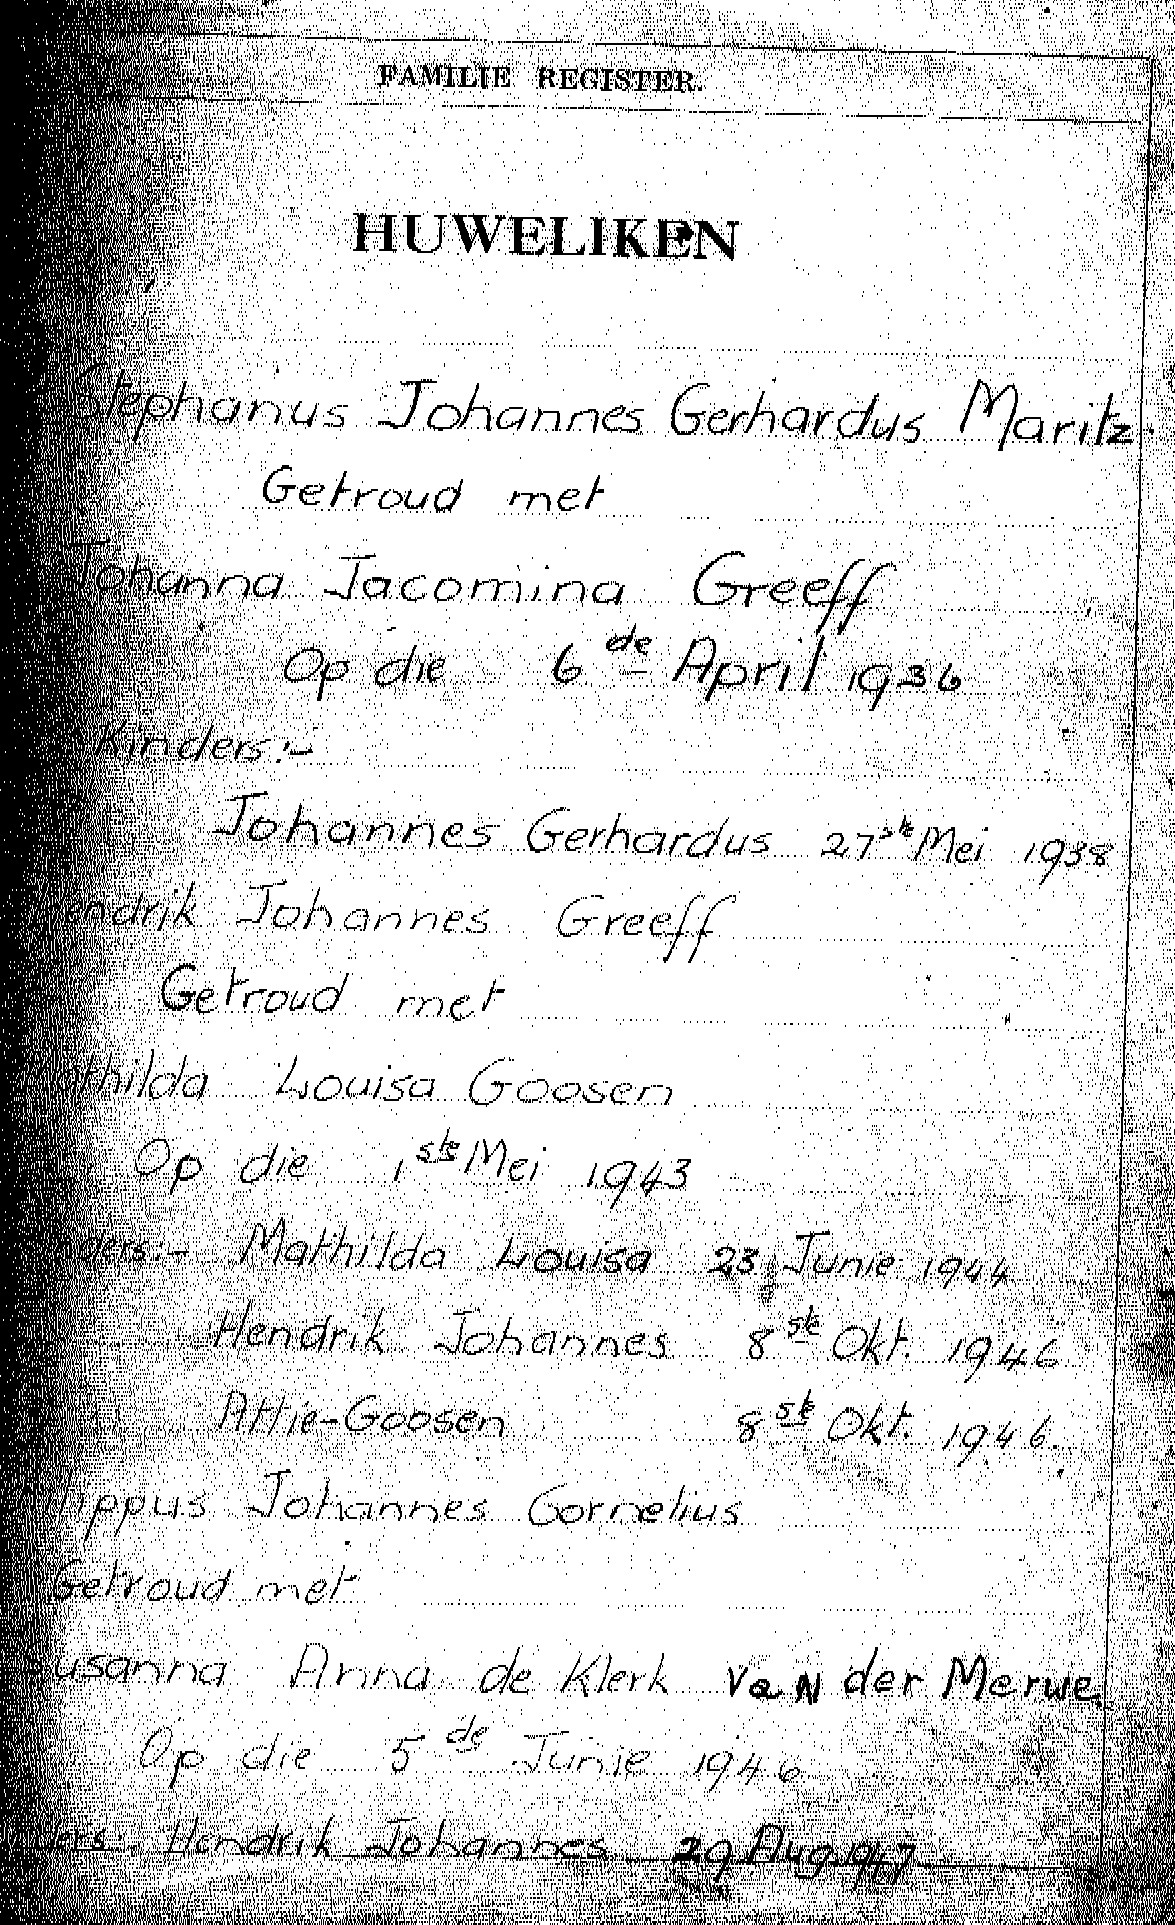 FAMILIE REGISTER.
HUWELIKEN
Stephanus Johannes Gerhardus Maritz.
Getroud met
Johanna Jacomina Greeff
Op die 6de April 1936
Kinders:-
Johannes Gerhardus 27ste Mei 1938
Hendrik Johannes Greeff
Getroud met
Mathilda Louisa Goosen
Op die 1ste Mei 1943
Mathilda Louisa 23 Junie 1944
Hendrik Johannes 8ste Okt. 1946
Attie-Goosen 8ste Okt. 1946.
Johannes Cornelius
Getroud met
Susanna Anna de Klerk van der Merwe.
Op die 5de Junie 1946
Hendrik Johannes 29 Aug 1947